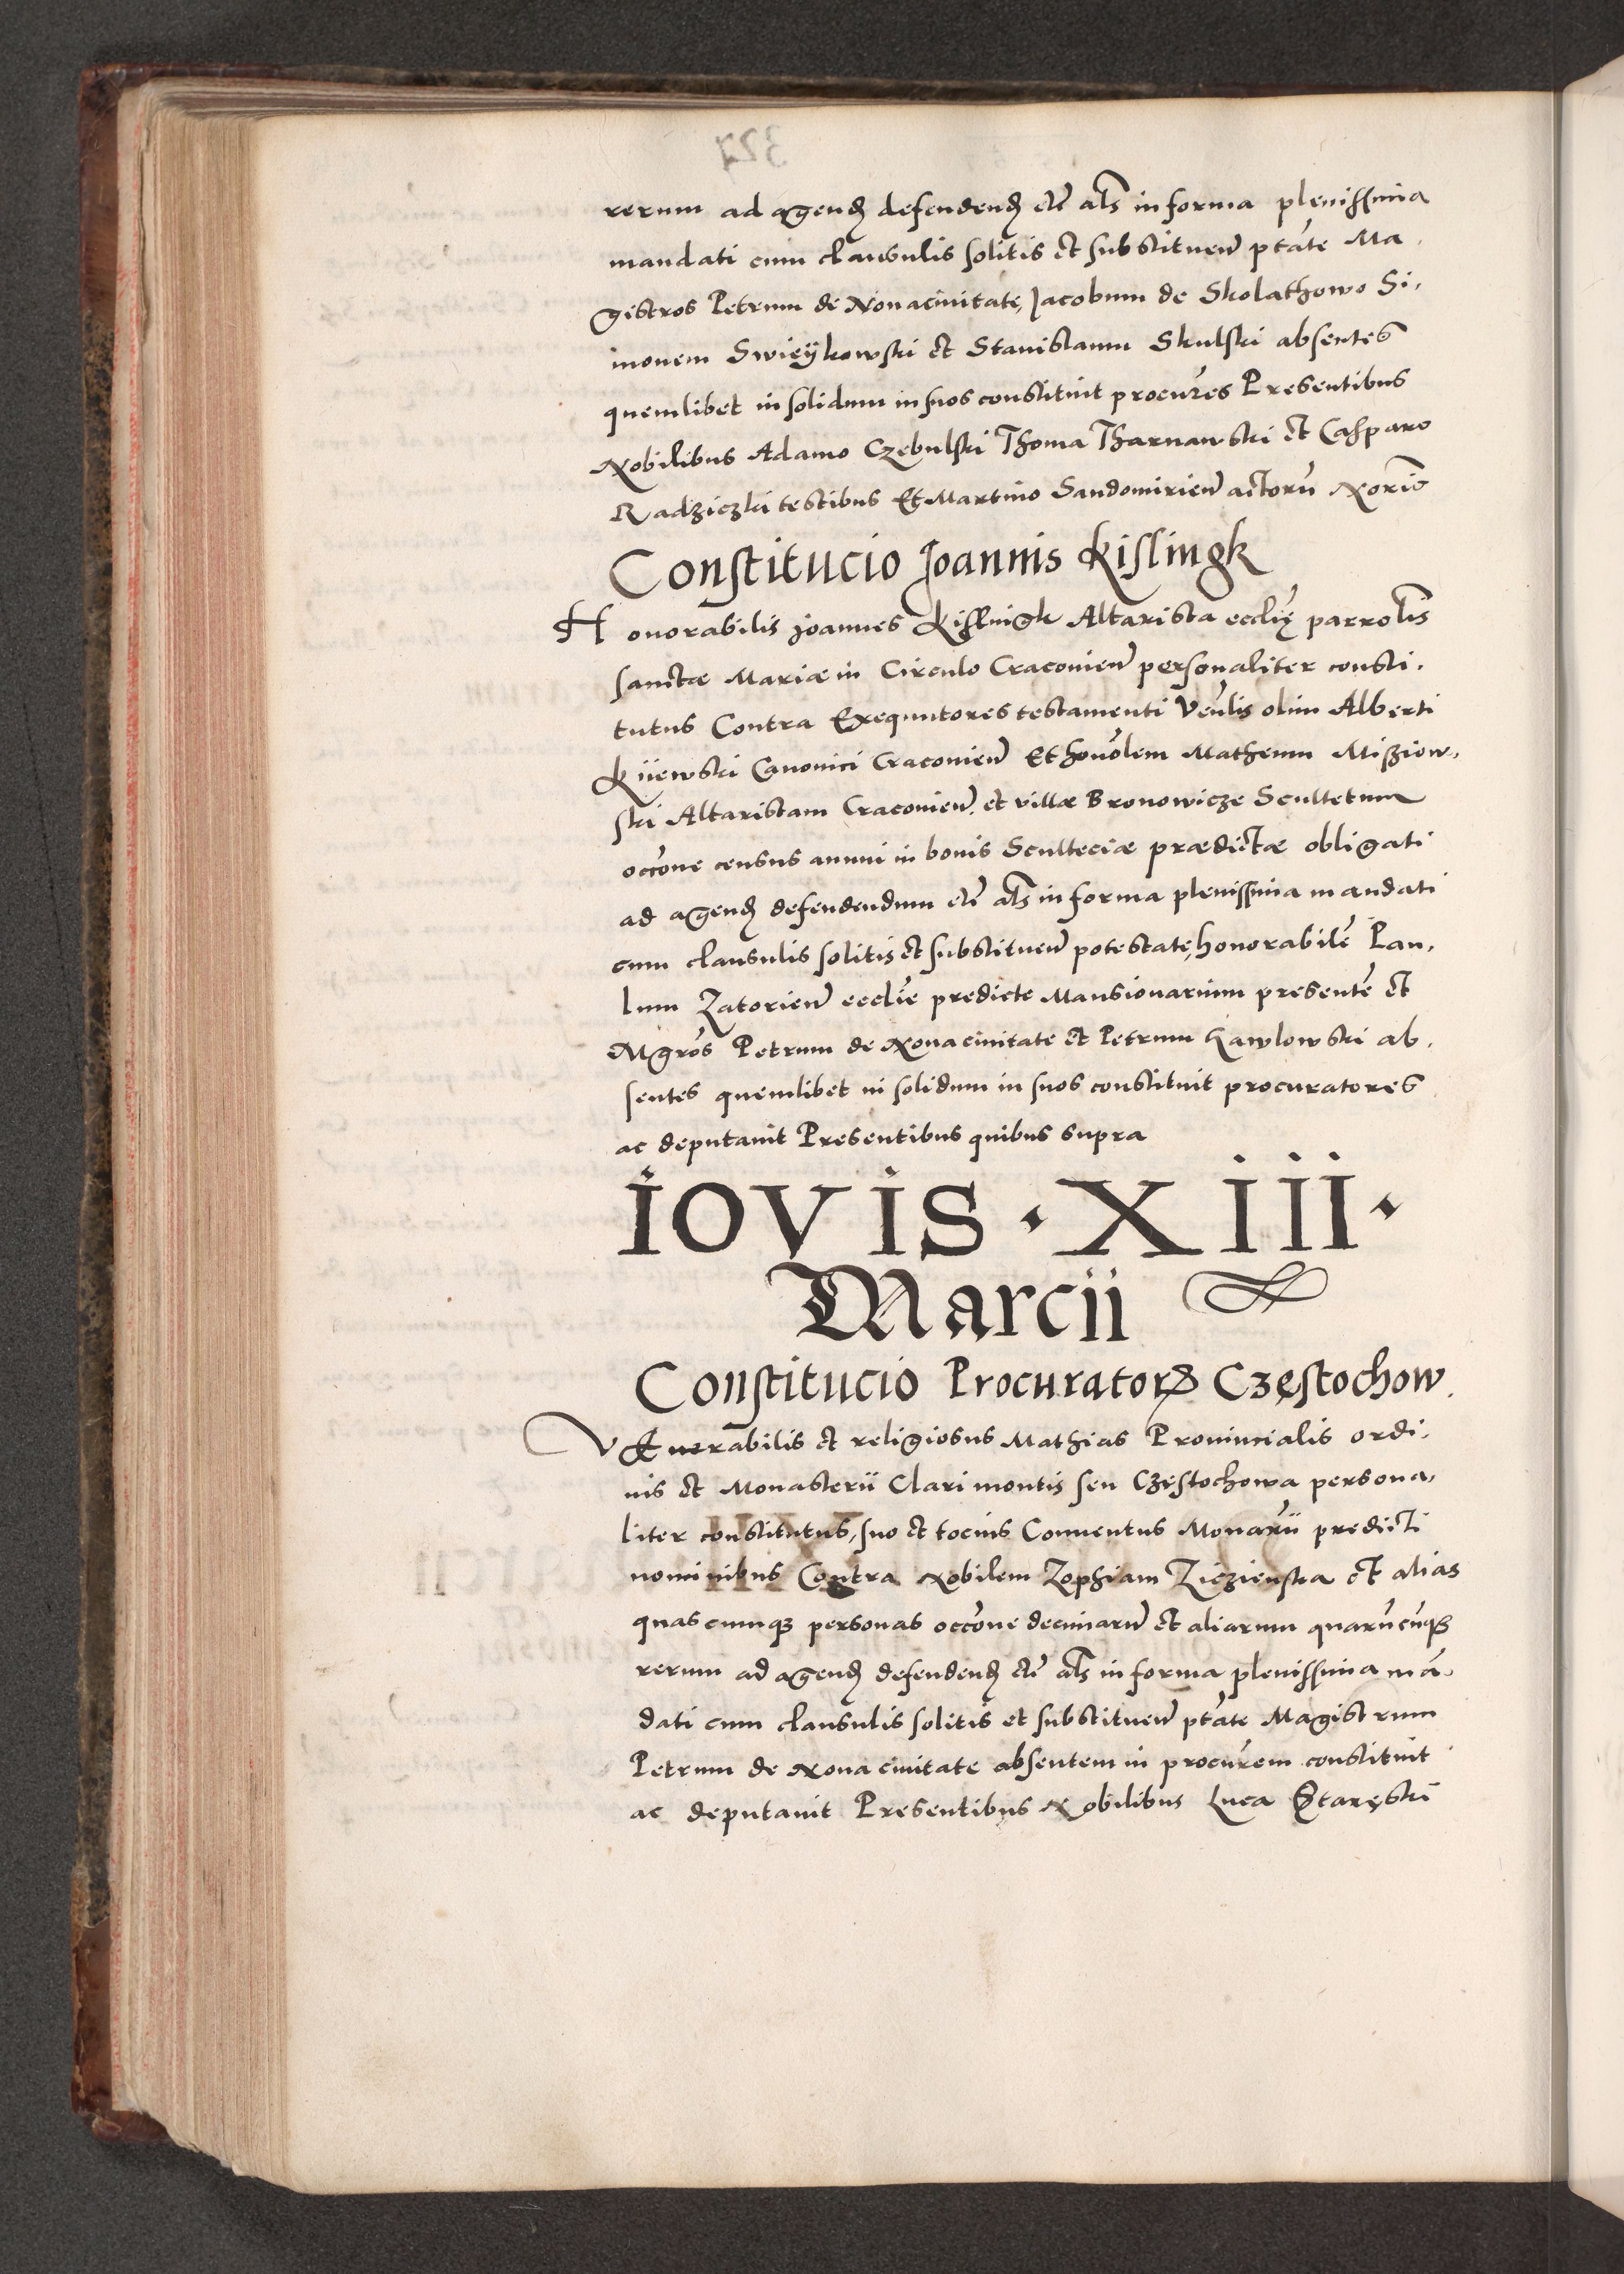 rerum ad agend defendend etc̄ als in forma plenissima
mandati cum clausulis solitis et substituen ptāte Ma,
gistros Petrum de Nouaciuitate, Jacobum de Skolathowo Si,
monem Swieÿkowski et Stanislaum Skulski absentes
quemlibet in solidum in suos constituit procur̄es Presentibus
Nobilibus Adamo Czebulski Thoma Tharnawski et Casparo
Radziczki testibus Et Martino Sandomirien actorū Norīo
Constitucio Joannis Kislingk
Honorabilis Joannes Kislingk Altarista ecclię̄ parrolīs
sanctæ Mariæ in Circulo Cracouien personaliter consti,
tutus Contra Exequutores testamenti Venlīs olim Alberti
Kiiewski Canonici Cracouien Et honōlem Matheum Misziow,
ski Altaristam Cracouien. et villæ Bronowicze Scultetum
occōne census annui in bonis Sculteciæ prædictæ obligati
ad agend defendendum etc̄ als in forma plenissima mandati
cum clausulis solitis et substituen potestate, honorabilē Pau,
lum Zatorien ecclīe predicte Mansionarium presentē et
Mgrōs Petrum de Noua ciuitate et Petrum Gawlowski ab,
sentes quemlibet in solidum in suos constituit procuratores
ac deputauit Presentibus quibus supra
IOVIS · XIII ·
Marcii
Constitucio Procuratorꝝ Częstochow.
VEnerabilis et religiosus Mathias Prouincialis ordi,
nis et Monasterii Clari montis seu Częstochowa persona,
liter constitutus, suo et tocius Conuentus Monarīi predicti
nominibus Contra Nobilem Zophiam Ziezienska et alias
quascumqꝫ personas occōne decimarū et aliarum quarūcūqꝫ
rerum ad agend defendend etc̄ als in forma plenissima mā,
dati cum clausulis solitis et substituen ptāte Magistrum
Petrum de Noua ciuitate absentem in procur̄em constituit
ac deputauit Presentibus Nobilibus Luca Staręski